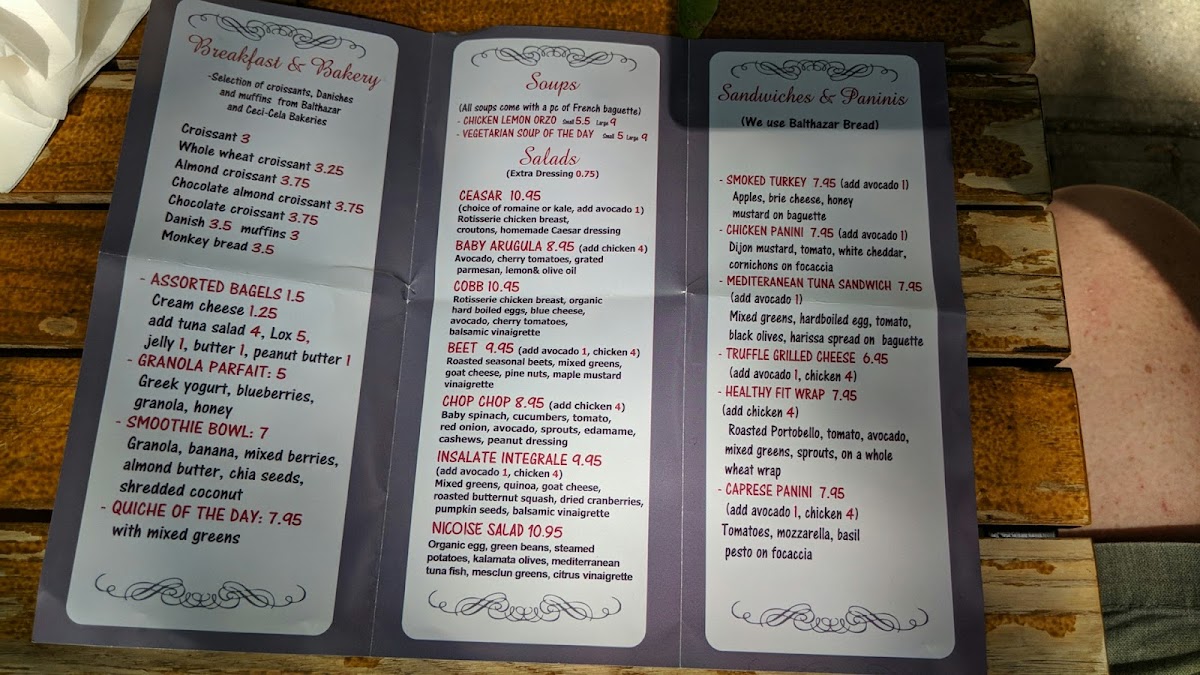 Breakfast & Bakery
-Selection of croissants, Danishes
and muffins from Balthazar
and Ceci-Cela Bakeries
Croissant 3
Whole wheat croissant 3.25
Almond croissant 3.75
Chocolate almond croissant 3.75
Chocolate croissant 3.75
Danish 3.5 muffins 3
Monkey bread 3.5
- ASSORTED BAGELS 1.5
Cream cheese 1.25
add tuna salad 4, Lox 5,
jelly 1, butter 1, peanut butter 1
- GRANOLA PARFAIT: 5
Greek yogurt, blueberries,
granola, honey
- SMOOTHIE BOWL: 7
Granola, banana, mixed berries,
almond butter, chia seeds,
shredded coconut
- QUICHE OF THE DAY: 7.95
with mixed greens
Soups
(All soups come with a pc of French baguette)
- CHICKEN LEMON ORZO Small 5.5 Large 9
- VEGETARIAN SOUP OF THE DAY Small 5 Large 9
Salads
(Extra Dressing 0.75)
CEASAR 10.95
(choice of romaine or kale, add avocado 1)
Rotisserie chicken breast,
croutons, homemade Caesar dressing
BABY ARUGULA 8.95 (add chicken 4)
Avocado, cherry tomatoes, grated
parmesan, lemon& olive oil
COBB 10.95
Rotisserie chicken breast, organic
hard boiled eggs, blue cheese,
avocado, cherry tomatoes,
balsamic vinaigrette
BEET 9.95 (add avocado 1, chicken 4)
Roasted seasonal beets, mixed greens,
goat cheese, pine nuts, maple mustard
vinaigrette
CHOP CHOP 8.95 (add chicken 4)
Baby spinach, cucumbers, tomato,
red onion, avocado, sprouts, edamame,
cashews, peanut dressing
INSALATE INTEGRALE 9.95
(add avocado 1, chicken 4)
Mixed greens, quinoa, goat cheese,
roasted butternut squash, dried cranberries,
pumpkin seeds, balsamic vinaigrette
NICOISE SALAD 10.95
Organic egg, green beans, steamed
potatoes, kalamata olives, mediterranean
tuna fish, mesclun greens, citrus vinaigrette
Sandwiches & Paninis
(We use Balthazar Bread)
- SMOKED TURKEY 7.95 (add avocado 1)
Apples, brie cheese, honey
mustard on baguette
- CHICKEN PANINI 7.95 (add avocado 1)
Dijon mustard, tomato, white cheddar,
cornichons on focaccia
- MEDITERANEAN TUNA SANDWICH 7.95
(add avocado 1)
Mixed greens, hardboiled egg, tomato,
black olives, harissa spread on baguette
- TRUFFLE GRILLED CHEESE 6.95
(add avocado 1, chicken 4)
- HEALTHY FIT WRAP 7.95
(add chicken 4)
Roasted Portobello, tomato, avocado,
mixed greens, sprouts, on a whole
wheat wrap
- CAPRESE PANINI 7.95
(add avocado 1, chicken 4)
Tomatoes, mozzarella, basil
pesto on focaccia